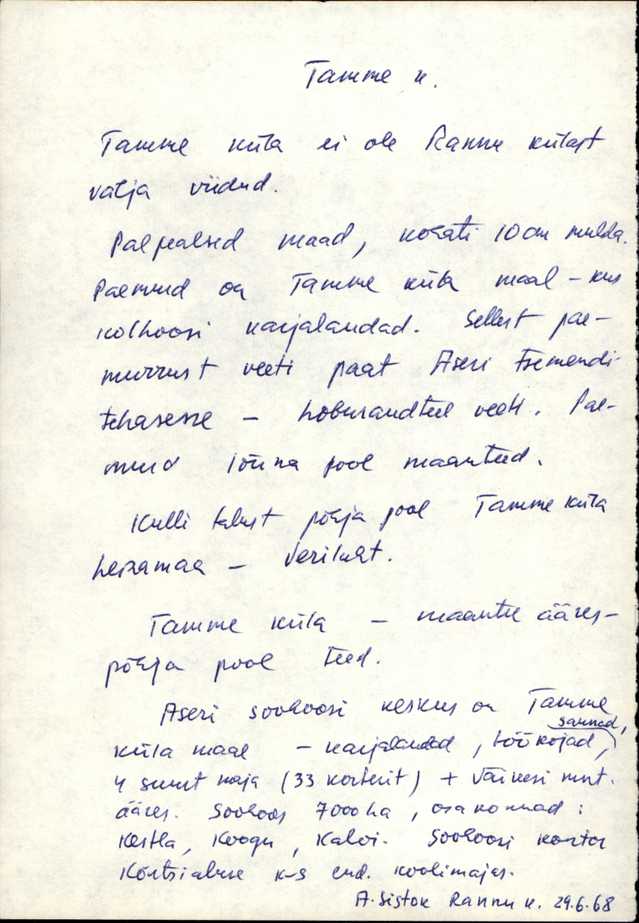 Tamme k.
Tamme küla ei ole Rannu külast
välja viidud.
Paepealsed maad, kohati 10 cm mulda.
Paemurd on Tamme küla maal – kus
kolhoosi karjalaudad. Sellest pae-
murrust veeti paat Aseri Tsemendi-
tehasesse – hoburaudteel veeti. Pae-
murd lõuna pool maanteed.
Kulli talust põhja pool Tamme küla
heinamaa –
Tamme küla – maantee ääres –
põhja pool teed.
Aseri sovhoosi keskus on Tamme
küla maal – karjalaudad, töökojad, saunad,
4 suurt maja (33 korterit) + väikesi mnt.
ääres. Sovhoos 7000 ha, osakonnad:
Kestla, Koogu, Kalvi. Sovhoosi kontor
Kõrtsialuse k-s end. koolimajas.
A. Sistok Rannu k. 29.6.68